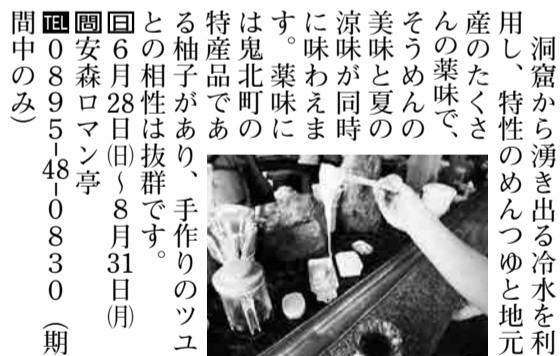 洞窟から湧き出る冷水を利
用し、特性のめんつゆと地元
産のたくさ
んの薬味で、
そうめんの
美味と夏の
涼味が同時
に味わえま
す。薬味に
は鬼北町の
特産品であ
る柚子があり、手作りのツユ
との相性は抜群です。
日6月28日㈰～8月31日㈪
問安森ロマン亭
℡0895-48-0830（期
間中のみ）